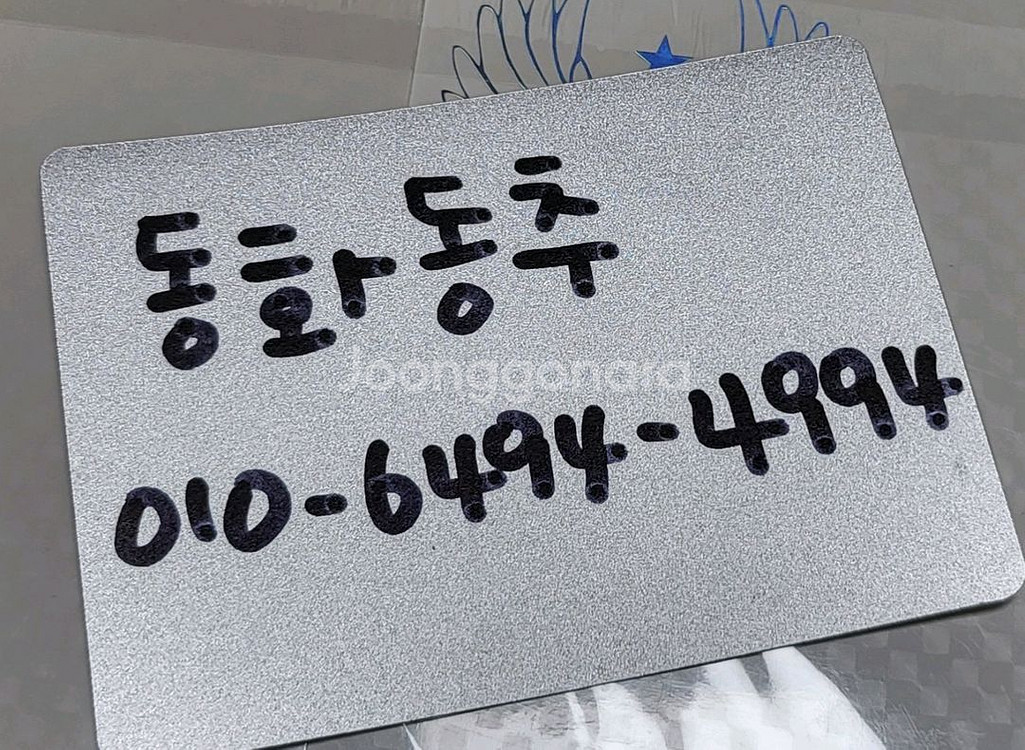 동화동추
010-6494-4994
Joonggonara